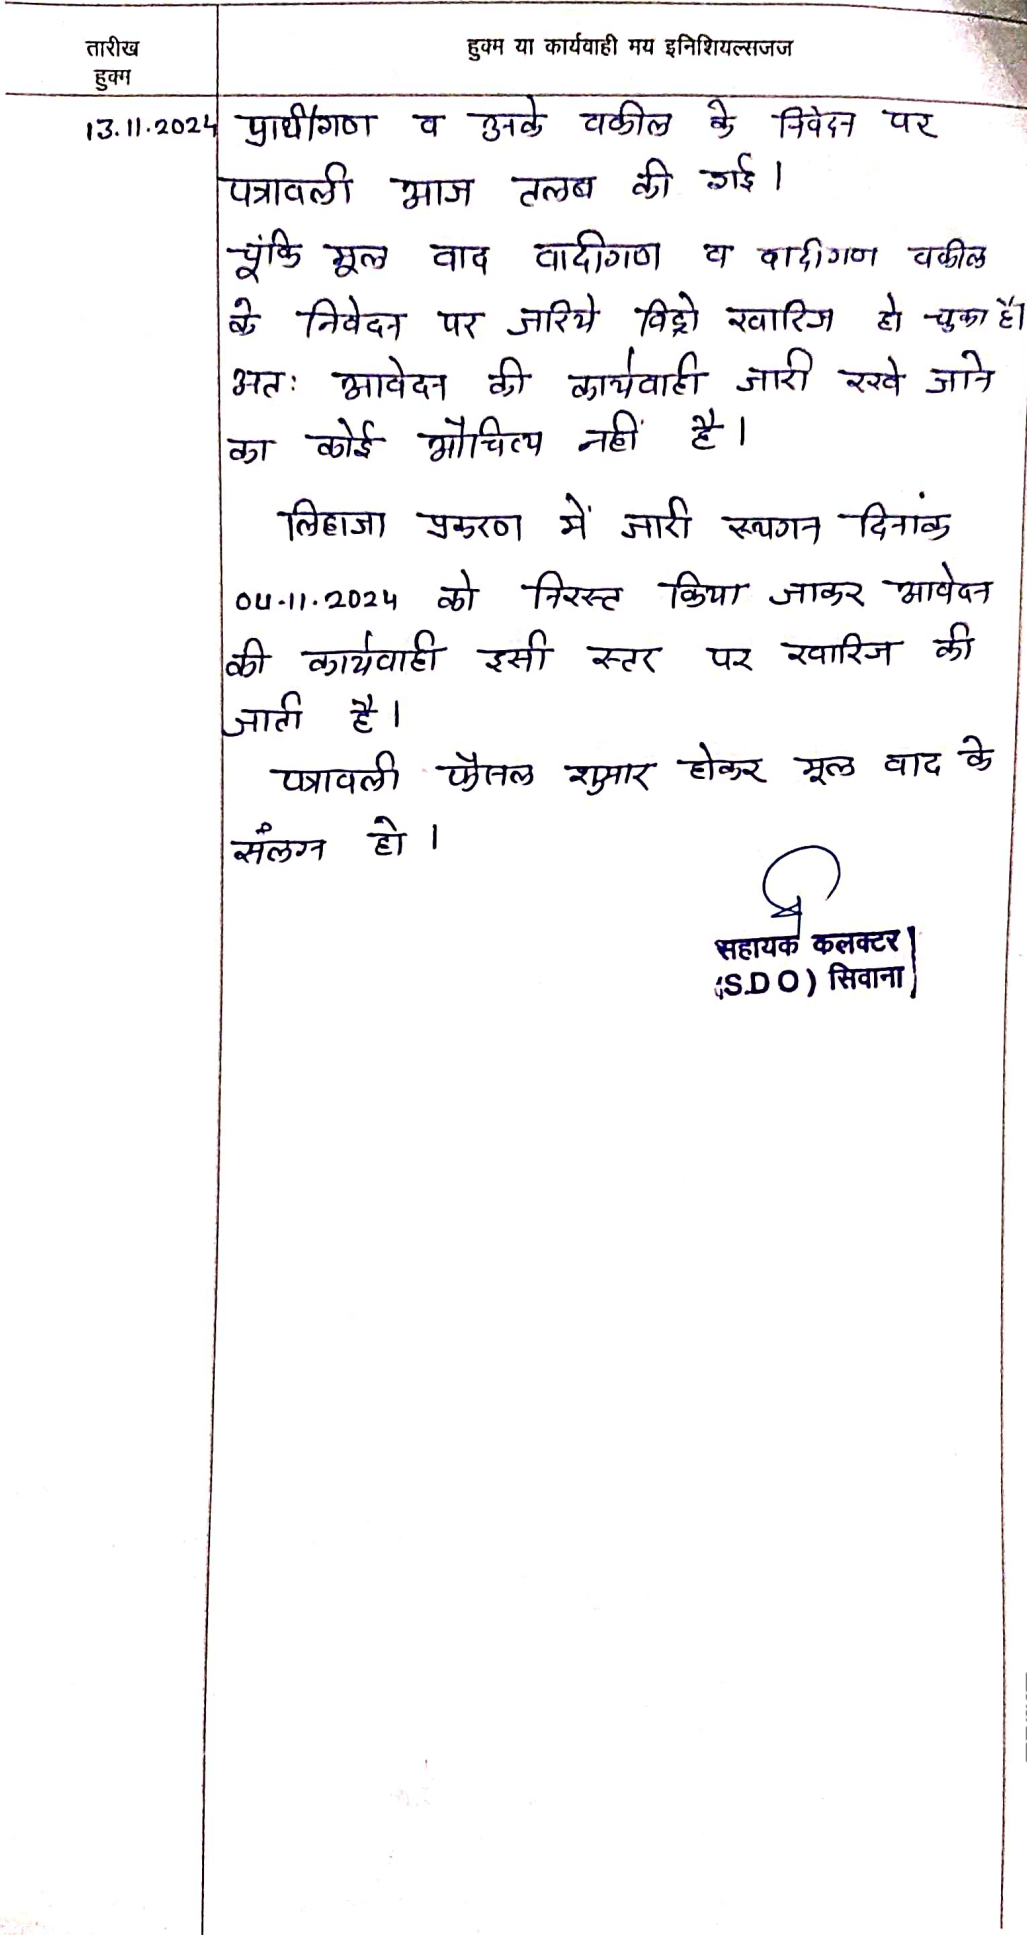 तारीख
हुक्म
हुक्म या कार्यवाही मय इनिशियल्सजज
13.11.2024 प्रार्थीगण व उनके वकील के निवेदन पर
पत्रावली आज तलब की गई।
चूंकि मूल वाद वादीगण व वादीगण वकील
के निवेदन पर जरिये विड्रो खारिज हो चुका है।
अतः आवेदन की कार्यवाही जारी रखे जाने
का कोई औचित्य नहीं है।
लिहाजा प्रकरण में जारी स्थगन दिनांक
04.11.2024 को निरस्त किया जाकर आवेदन
की कार्यवाही इसी स्तर पर खारिज की
जाती है।
पत्रावली फैसल शुमार होकर मूल वाद के
संलग्न हो।
सहायक कलक्टर
(S.D O) सिवाना